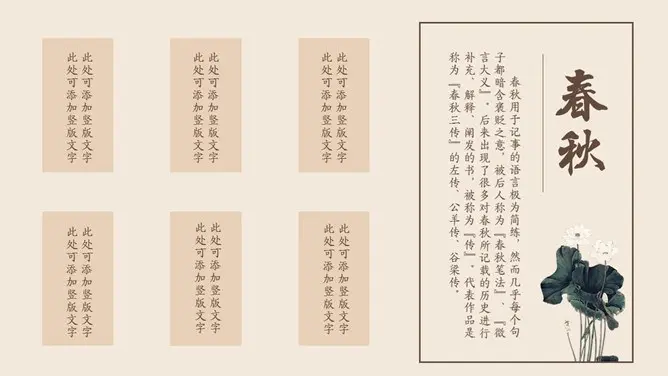 春秋
春秋用于记事的语言极为简练，然而几乎每个句
子都暗含褒贬之意，被后人称为『春秋笔法』、『微
言大义』。后来出现了很多对春秋所记载的历史进行
补充、解释、阐发的书，被称为『传』。代表作品是
称为『春秋三传』的左传、公羊传、谷梁传。
此处可添加竖版文字
此处可添加竖版文字
此处可添加竖版文字
此处可添加竖版文字
此处可添加竖版文字
此处可添加竖版文字
此处可添加竖版文字
此处可添加竖版文字
此处可添加竖版文字
此处可添加竖版文字
此处可添加竖版文字
此处可添加竖版文字